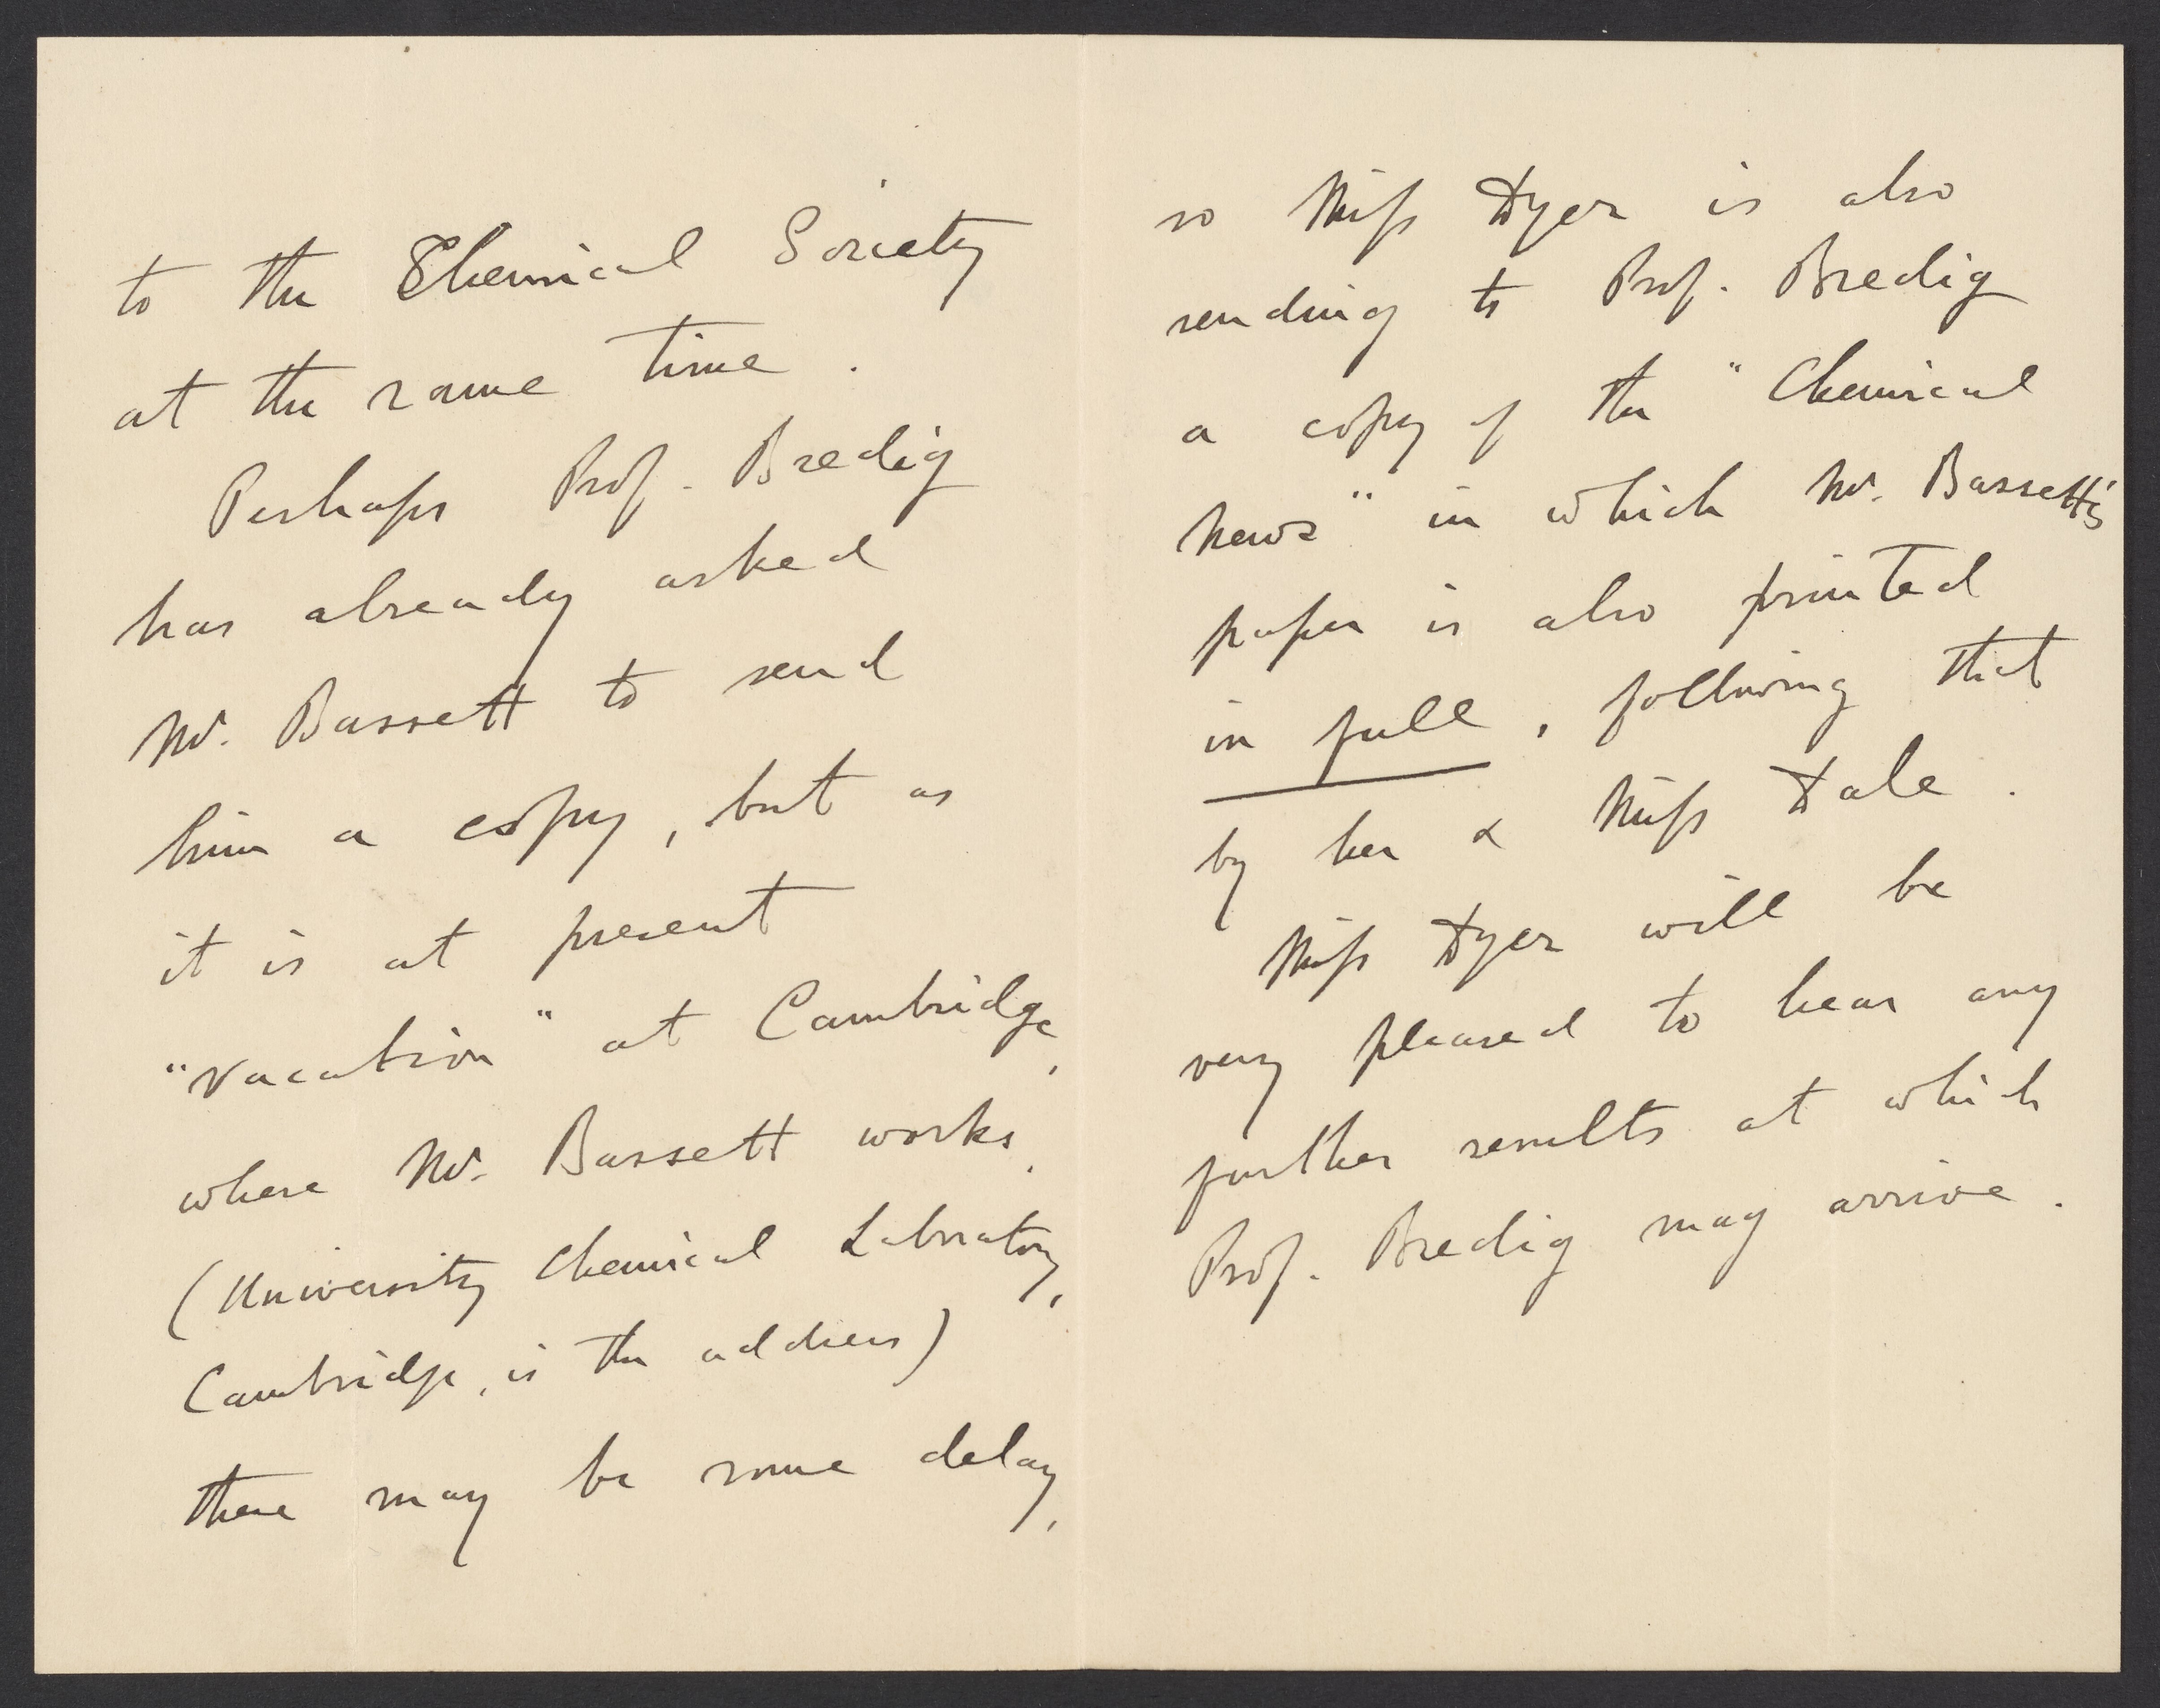 to the Chemical Society
at the same time.
Perhaps Prof. Bredig
has already asked
Mr. Bassett to send
him a copy, but as
it is at present
"vacation" at Cambridge,
where Mr. Bassett works,
(University Chemical Laboratory,
Cambridge, is the address)
there may be some delay,
so Miss Dyer is also
sending to Prof. Bredig
a copy of the "Chemical
News" in which Mr. Bassett's
paper is also printed
in full, following that
by her & Miss Dale.
Miss Dyer will be
very pleased to hear any
further results at which
Prof. Bredig may arrive.